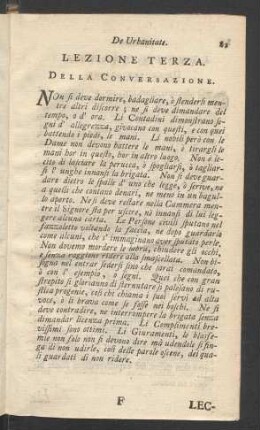 De Urbanitate. 81
LEZIONE TERZA.
DELLA CONVERSAZIONE.
NOn si deve dormire, badagliare, ò stendersi men-
tre altri discorre; ne si deve dimandare del
tempo, o d' ora. Li Contadini dimonstrano se-
gni d' allegrezza, giocando con questi, e con quei
battendo i piedi, le mani. Li nobili però con le
Dame non devono battere le mani, e tirargli le
mani hor in questo, hor in altro luogo. Non è le-
cito di levarsi la perucca, ò spogliarsi, ò tagliar-
si l' unghe innansi la brigata. Non si deve guar-
dare dietro le spalle d' uno che legge, ò scrive, ne
a quelli che contano denari, ne meno in un bagul-
lo aparto. Ne si deve restare nella Cammera men-
tre il signore sta per uscire, nò innansi di lui leg-
gere alcuna carta. Le Persone civili sputano nel
fazzoletto voltando la faccia, ne dopo guarderla
come alcuni, che s' immaginano aver sputati perle.
Non devono mordere le labra, chiudere gli occhi,
e senza raggione ridere alla smascellata. Non bi-
sogna nel entrar sedersi sino che sarai comandato,
ò con l' esempio, ò segni. Quei che con gran
strepito si glorianno di sternuntare si palesano di ru-
stica progenie, così chi chiama i suoi servi ad alta
voce, ò li brava come se fosse nei boschi. Ne si
deve contradire, ne interrompere la brigata senza
dimandar licenza prima. Li Complimenti bre-
vissimi sono ottimi. Li Giuramenti, le blasfe-
mie non solo non si devono dire mà udendole si fin-
ga di non udirle, così delle parole oscene, dei qua-
li guardati di non ridere.
F LEC-